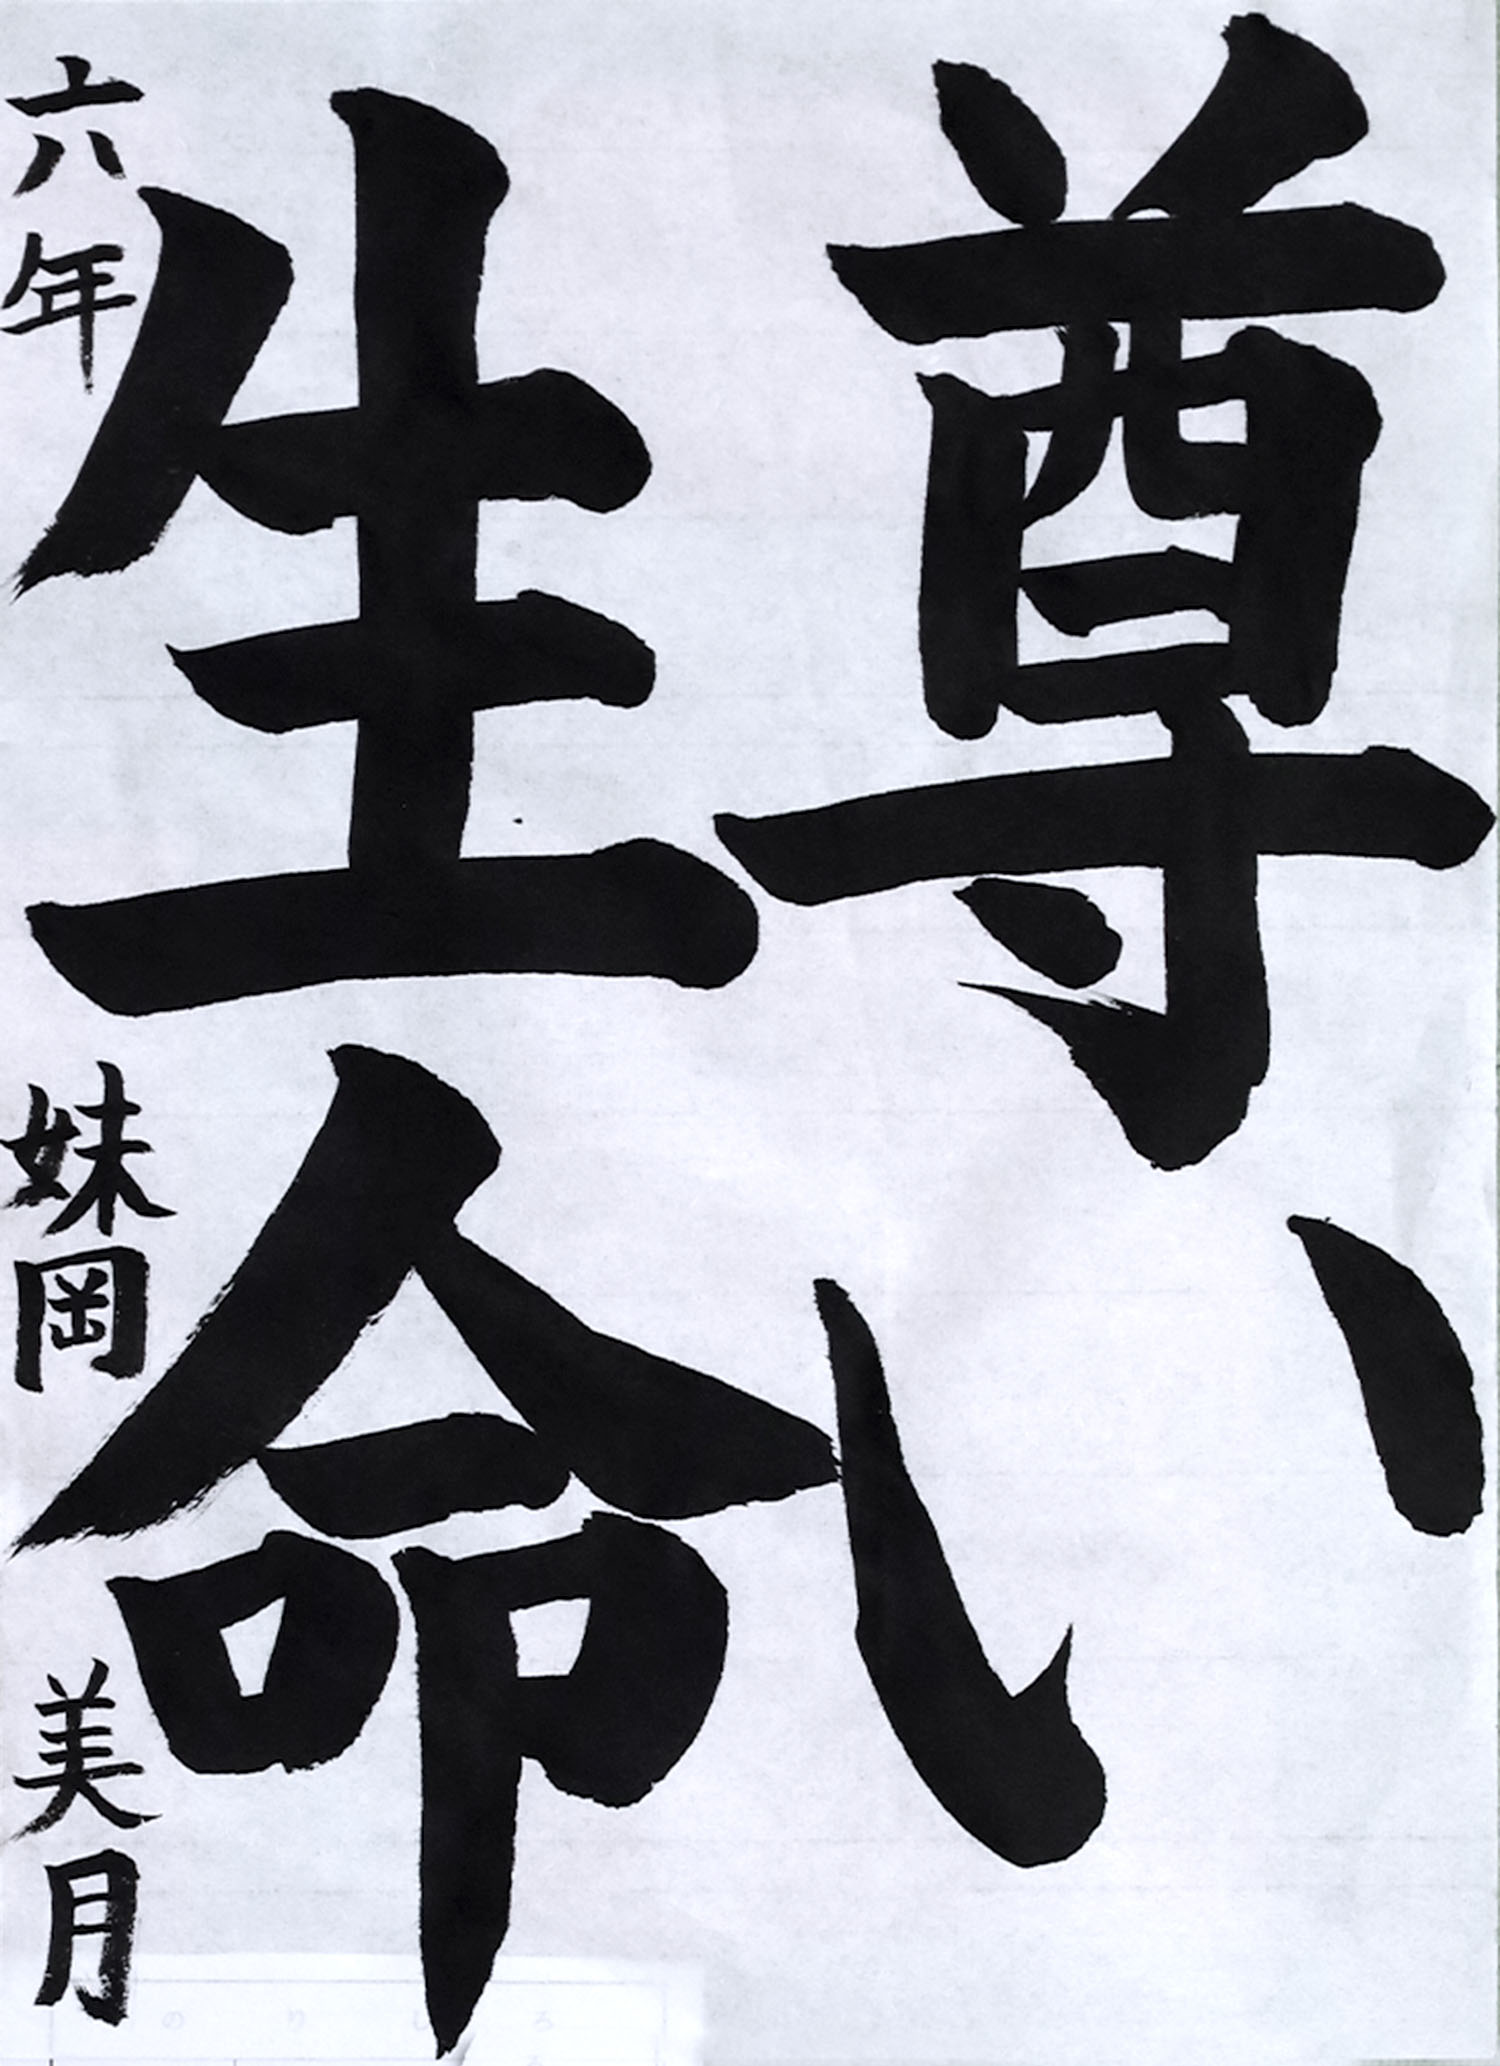 尊い
生命
六年 妹岡 美月
のりしろ